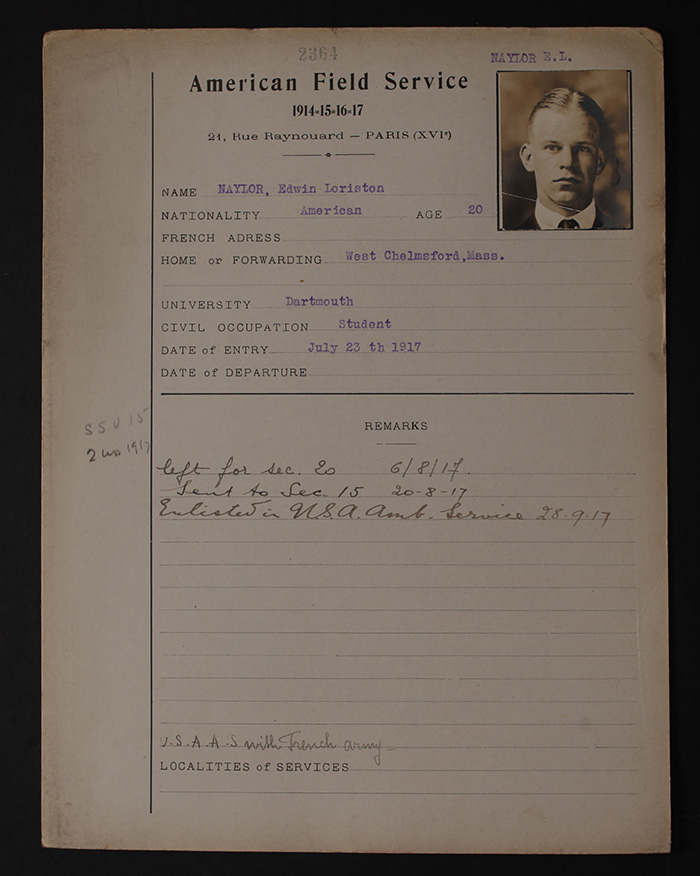 2364
NAYLOR E.L.
American Field Service
1914-15-16-17
21, Rue Raynouard — PARIS (XVIe)
NAME NAYLOR, Edwin Loriston
NATIONALITY American AGE 20
FRENCH ADRESS
HOME or FORWARDING West Chelmsford,Mass.
UNIVERSITY Dartmouth
CIVIL OCCUPATION Student
DATE of ENTRY July 23 th 1917
DATE of DEPARTURE
REMARKS
SSU 15
2 mos 1917
left for sec. 20 6/8/17.
Sent to Sec. 15 20-8-17
Enlisted in U.S.A. Amb. Service 28-9-17
U.S.A.A.S with French army
LOCALITIES of SERVICES